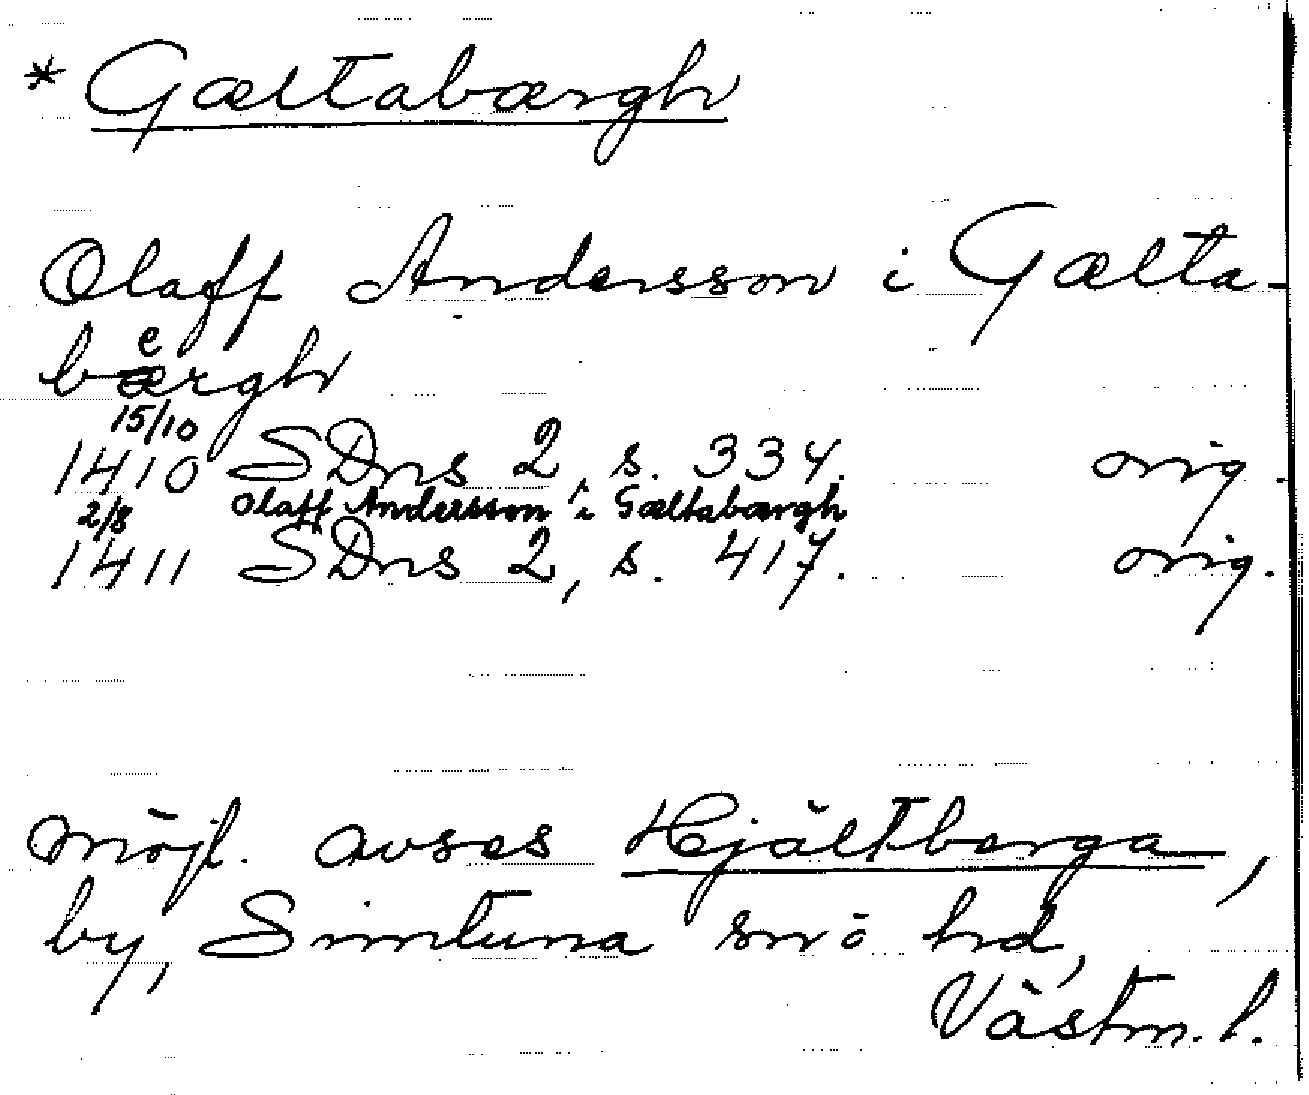 * Gæltabærgh
Olaff Andersson i Gælta-
bergh
15/10
1410 SDns 2, s. 334. orig.
2/8 Olaff Andersson i Gæltabærgh
1411 SDns 2, s. 417. orig.
möjl. avses Hjältberga,
by, Simtuna sn o hd,
Västm. l.